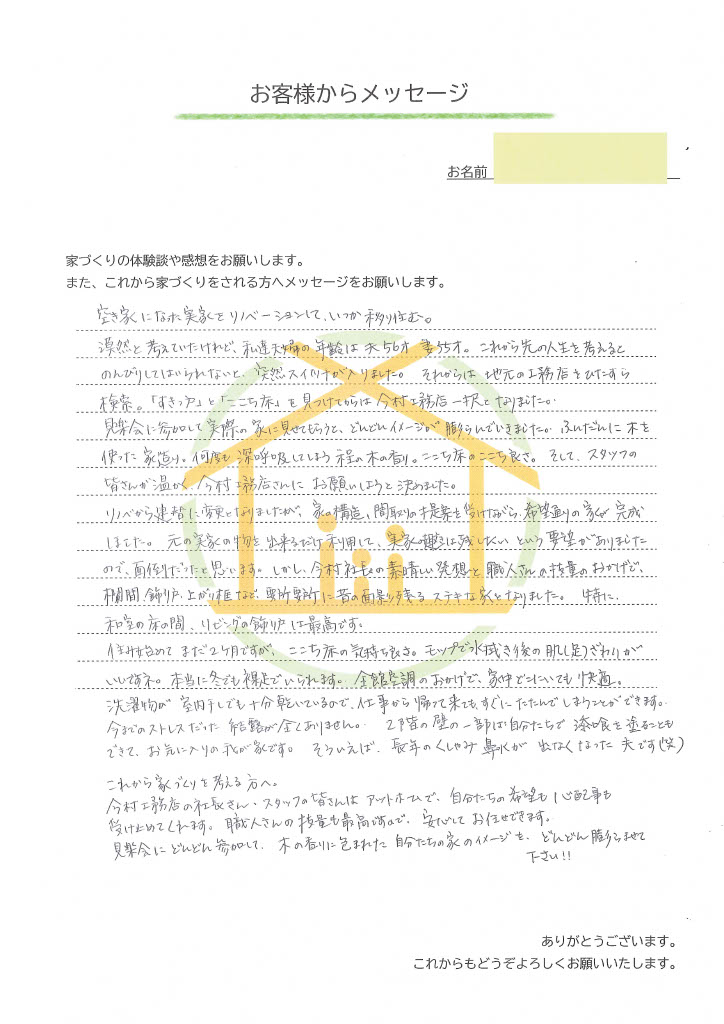 お客様からメッセージ
お名前
家づくりの体験談や感想をお願いします。
また、これから家づくりをされる方へメッセージをお願いします。
空き家になった実家をリノベーションして、いつか移り住む。
漠然と考えていたけれど、私達夫婦の年齢は夫56才 妻55才。これから先の人生を考えると
のんびりしてはいられないと、突然スイッチが入りました。それからは地元の工務店をひたすら
検索。「すきっ戸」と「ここち床」を見つけてからは今村工務店一択となりました。
見学会に参加して実際の家に見せてもらうと、どんどんイメージが膨らんでいきました。ふんだんに木を
使った家造り。何度も深呼吸してしまう程の木の香り。ここち床のここち良さ。そして、スタッフの
皆さんが温かく、今村工務店さんにお願いしようと決めました。
リノベから建替に変更となりましたが、家の構造、間取りの提案を受けながら、希望通りの家が完成
しました。元の実家の物を出来るだけ利用して、実家の趣は残したいという要望がありました
ので、面倒だったと思います。しかし、今村社長の素晴しい発想と職人さんの技量のおかげで、
欄間、飾り戸、上がり框など、要所要所に昔の面影が残るステキな家となりました。特に、
和室の床の間、リビングの飾り戸は最高です。
住み始めてまだ2ケ月ですが、ここち床の気持ち良さ。モップで水拭き後の肌(足)ざわりが
いいですネ。本当に冬でも裸足でいられます。全館空調のおかげで、家中どこにいても快適。
洗濯物が室内干しでも十分乾いているので、仕事から帰って来てもすぐにたたんでしまうことができます。
今までのストレスだった結露が全くありません。2階の壁の一部は自分たちで漆喰を塗ることも
できて、お気に入りの我が家です。そういえば、長年のくしゃみ鼻水が出なくなった夫です(笑)
これから家づくりを考える方へ。
今村工務店の社長さん・スタッフの皆さんはアットホームで、自分たちの希望も心配事も
受け止めてくれます。職人さんの技量も最高ですので、安心してお任せできます。
見学会にどんどん参加して、木の香りに包まれた自分たちの家のイメージを、どんどん膨らませて
下さい!!
ありがとうございます。
これからもどうぞよろしくお願いいたします。